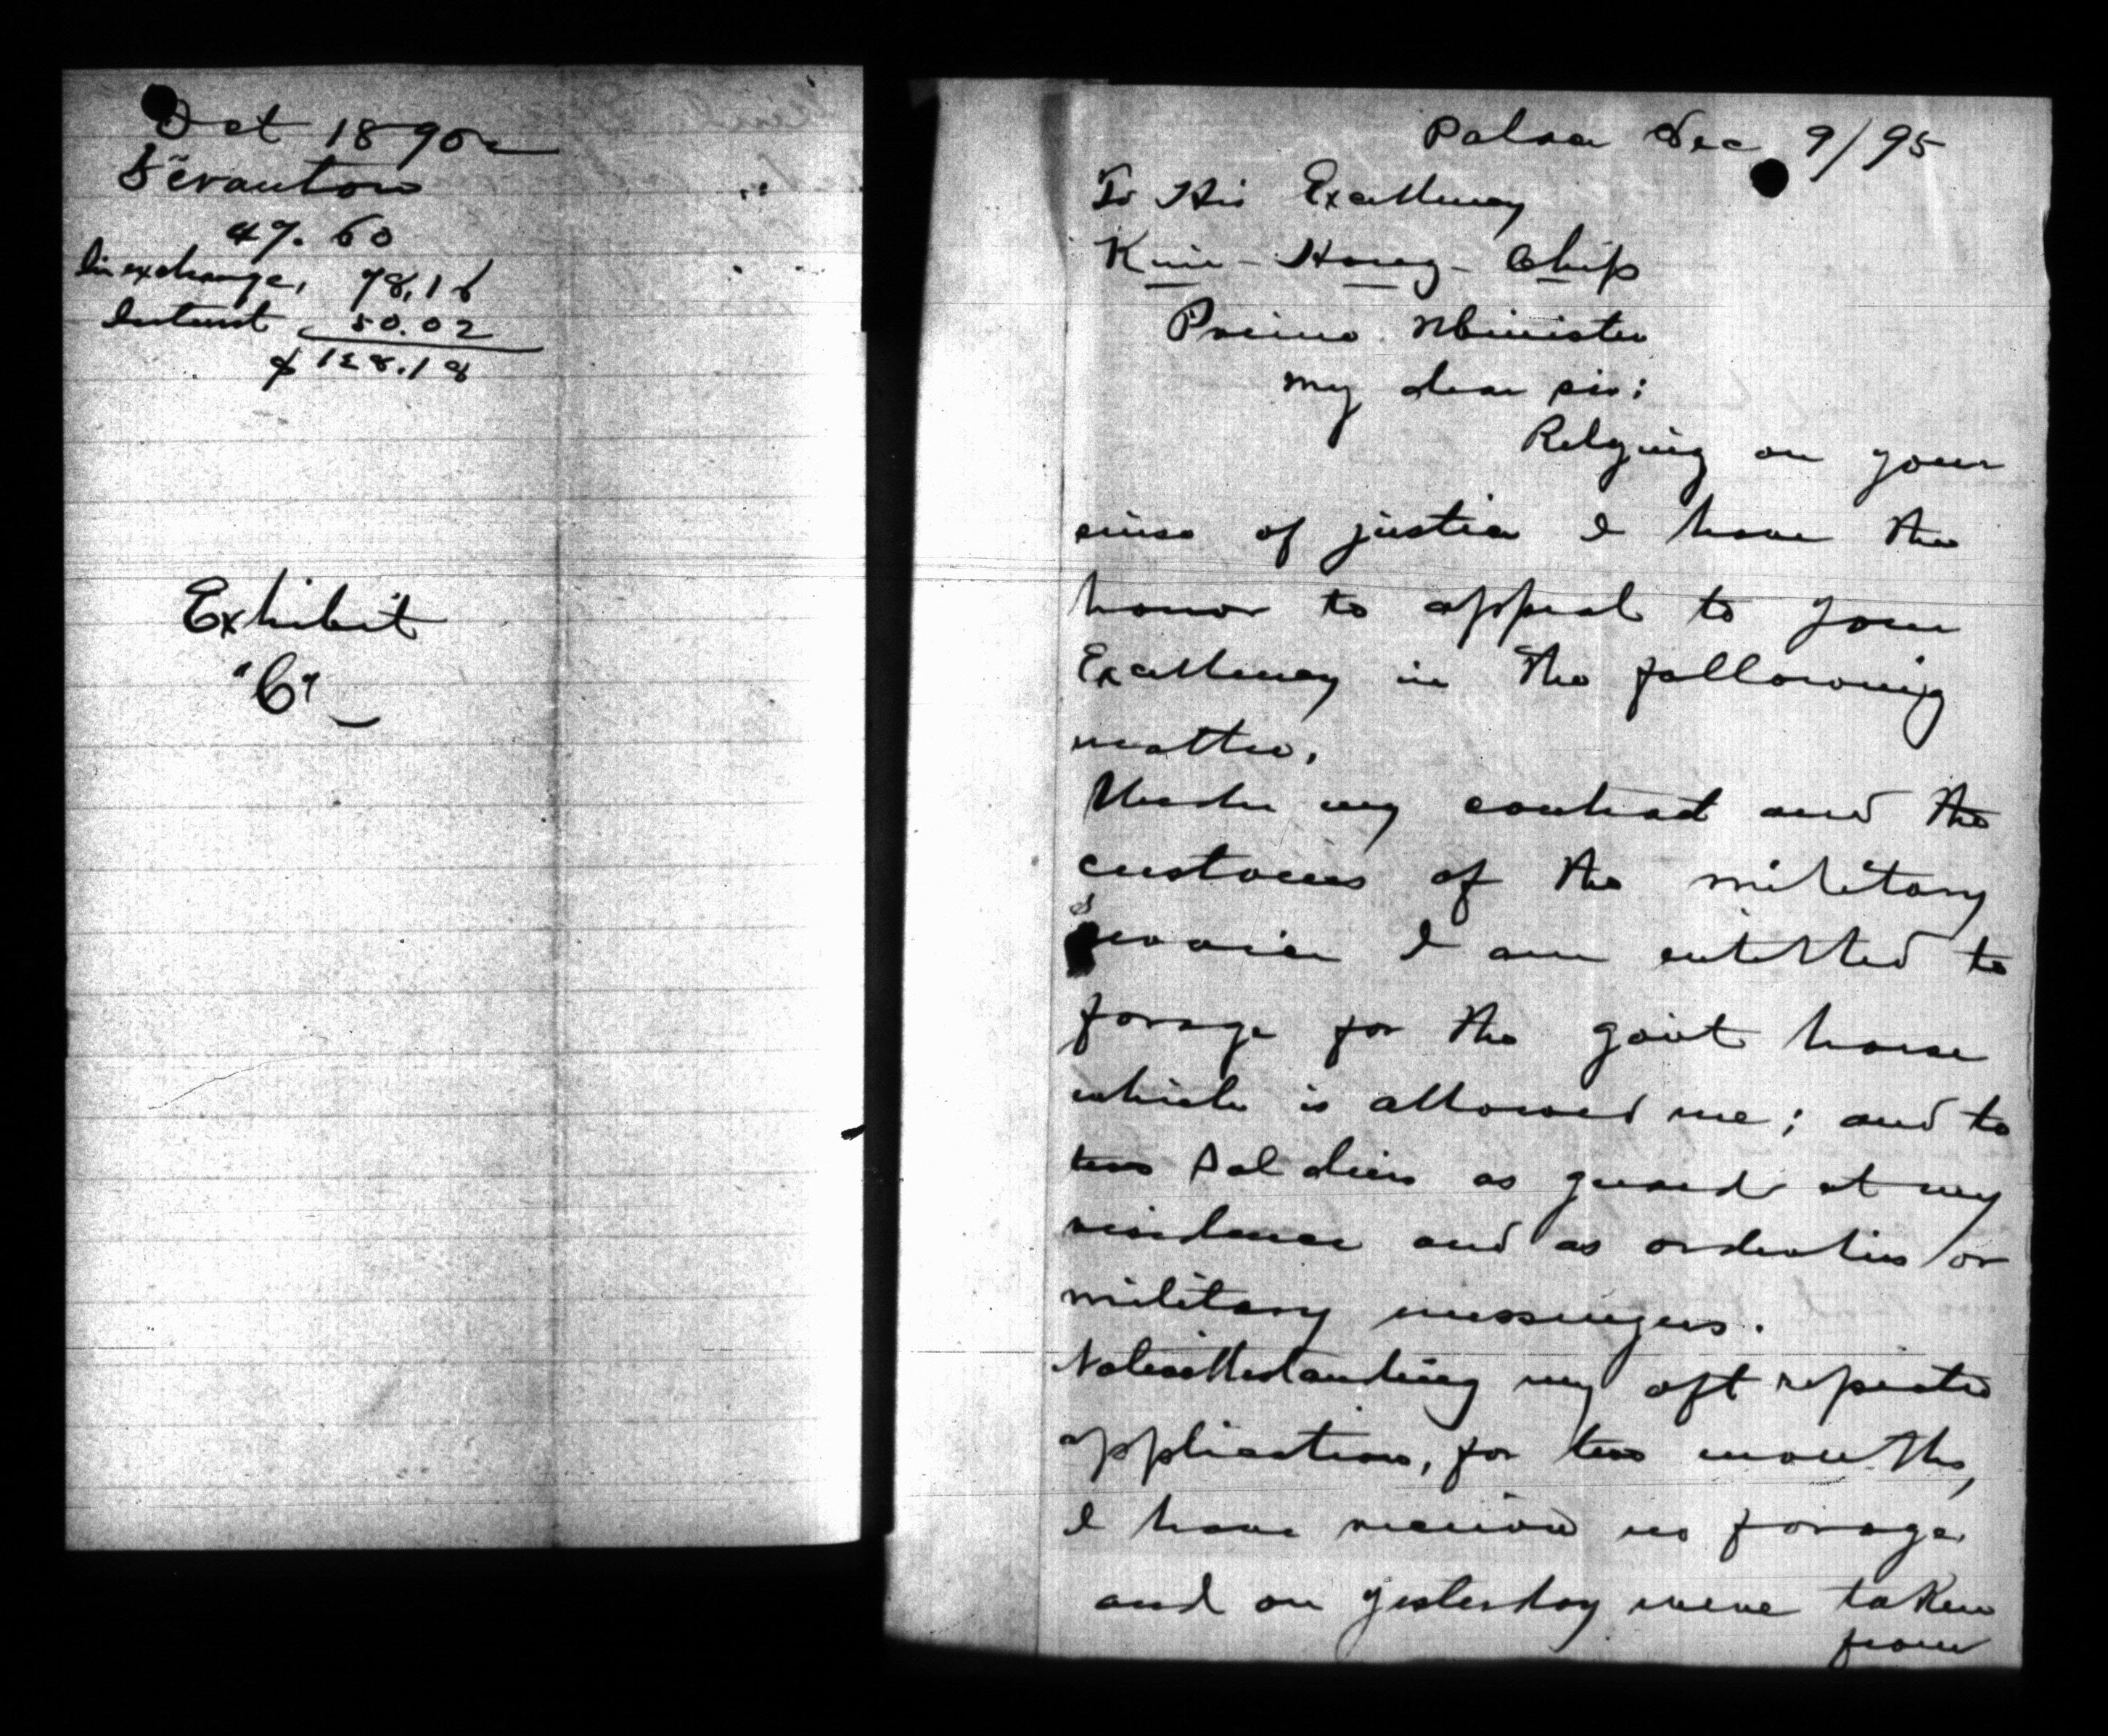 Oct 1890
Scranton
47.60
In exchange, 78.16
Interest 50.02
$128.18
Exhibit
"C"
Dec 9/95
To His Excellency
Kim-Hong-Chip
Prime Minister
My dear sir:
Relying on your
sense of justice I have the
honor to appeal to your
Excellency in the following
matter.
Under my contract and the
customs of the military
service I am entitled to
forage for the gov't horse
which is allowed me; and to
two soldiers as guard at my
residence and as orderlies or
military messengers.
Notwithstanding my oft repeated
application, for two months,
I have received no forage
and on yesterday were taken
from